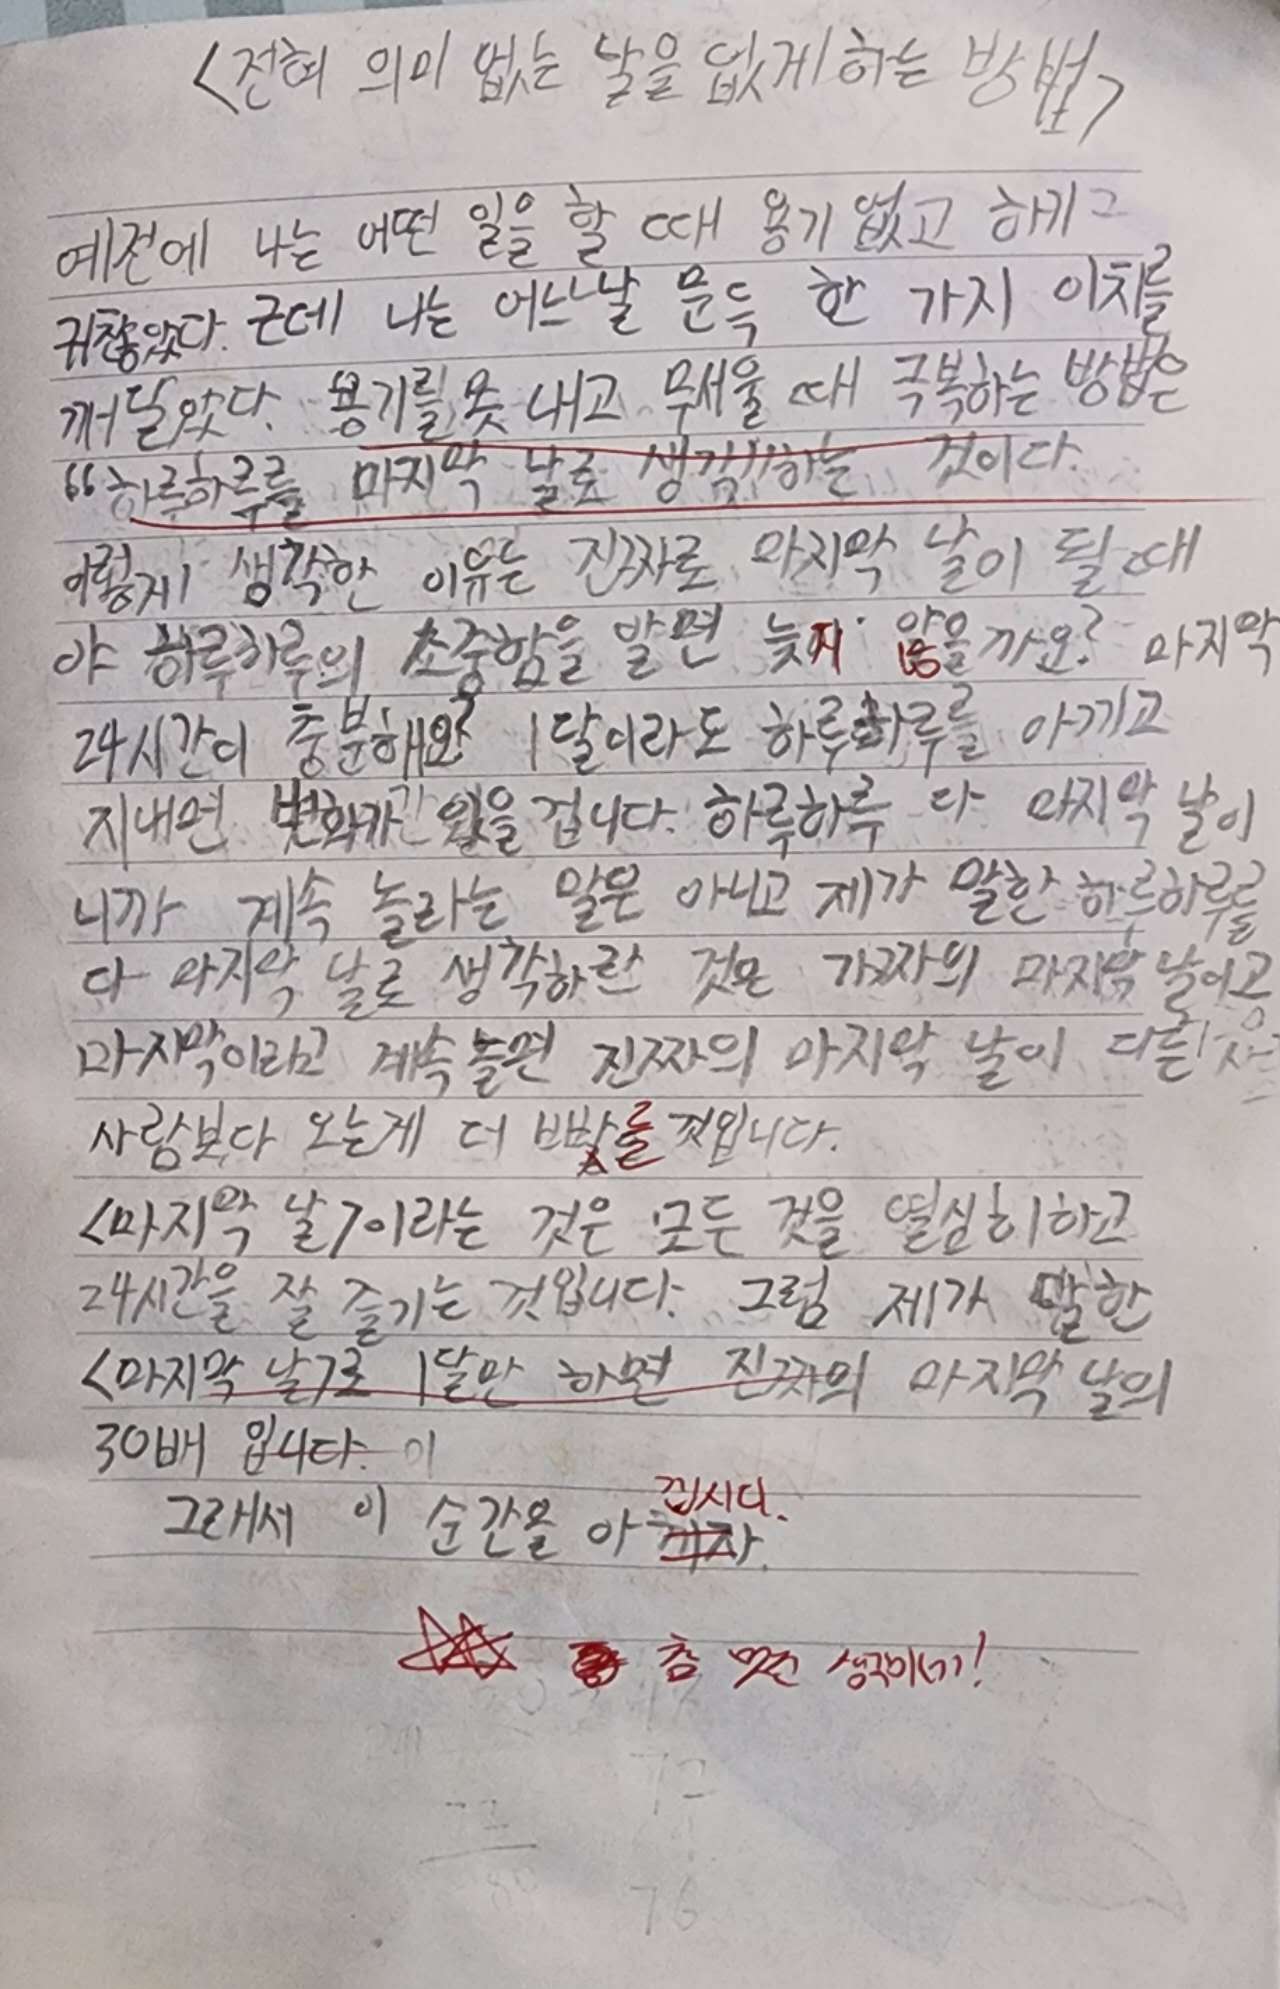 <전혀 의미 없는 날을 없게 하는 방법>
예전에 나는 어떤 일을 할 때 용기 없고 하기
귀찮았다. 근데 나는 어느날 문득 한 가지 이치를
깨달았다. 용기를 못 내고 무서울 때 극복하는 방법은
"하루하루를 마지막 날로 생각하는 것이다.
이렇게 생각한 이유는 진짜로 마지막 날이 될 때
야 하루하루의 소중함을 알면 늦지 않을까요? 마지막
24시간이 충분해요? 1달이라도 하루하루를 아끼고
지내면 변화가 있을 겁니다. 하루하루 다 마지막 날이
니까 계속 놀라는 말은 아니고 제가 말한 하루하루를
다 마지막 날로 생각하란 것은 가짜의 마지막 날이고
마지막이라고 계속 놀면 진짜의 마지막 날이 다른
사람보다 오는게 더 빠를 것입니다.
<마지막 날>이라는 것은 모든 것을 열심히 하고
24시간을 잘 즐기는 것입니다. 그럼 제가 말한
<마지막 날>로 1달만 하면 진짜의 마지막 날의
30배 입니다. 이
낍시다.
그래서 이 순간을 아끼자.
참 멋진 생각이네!
72
76